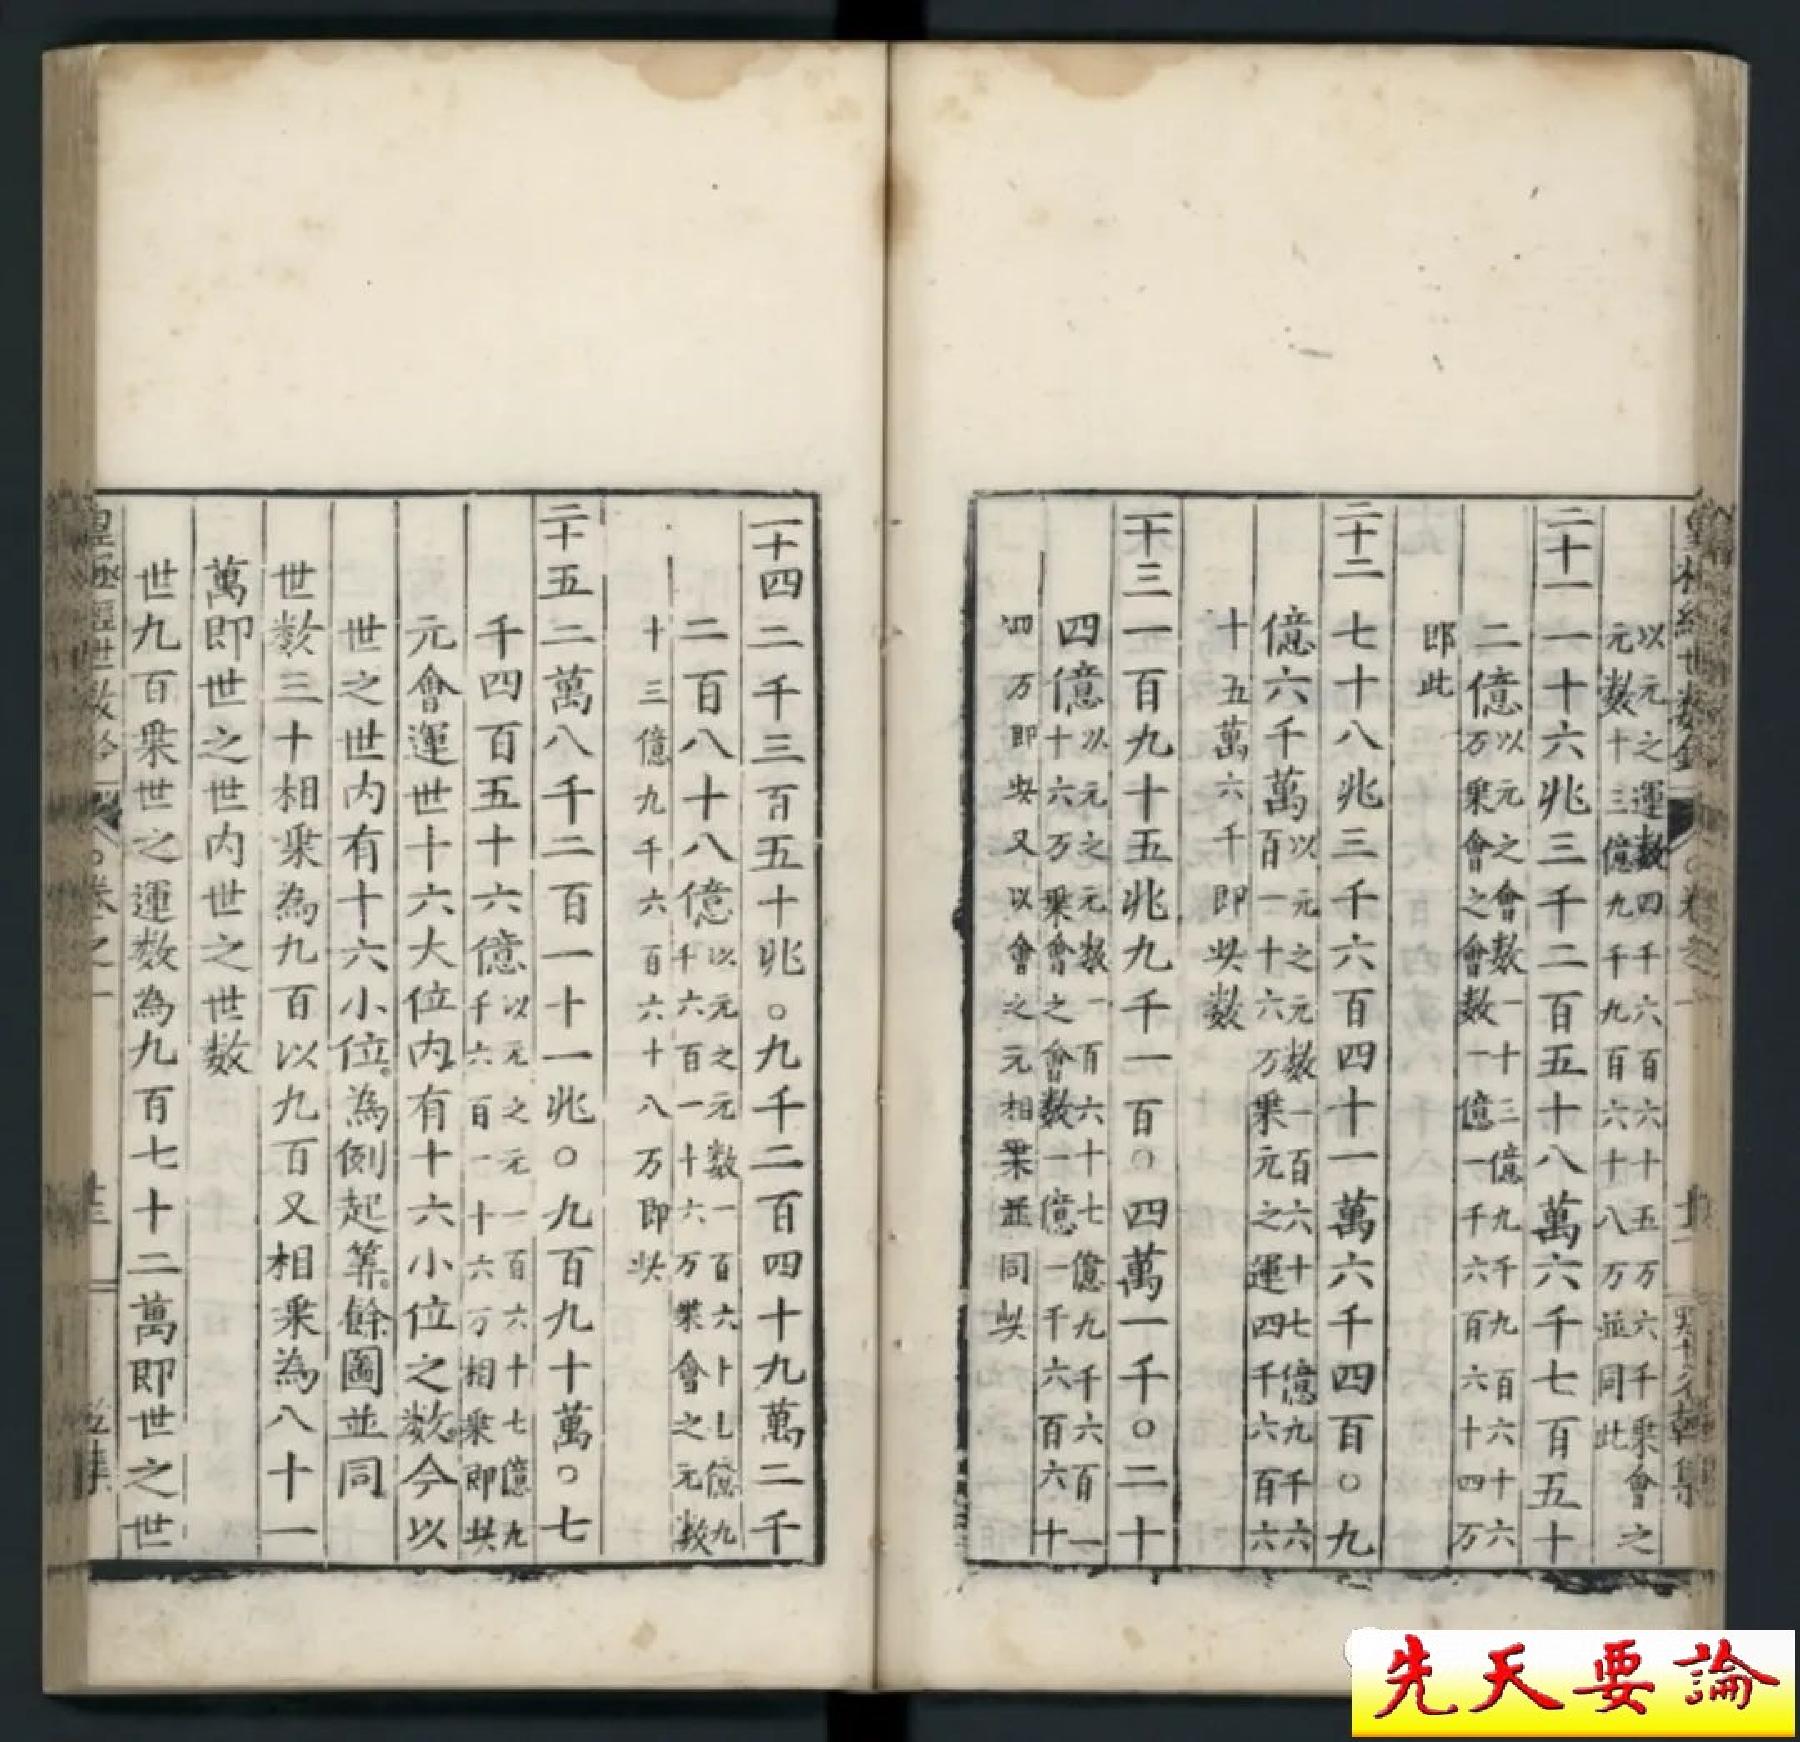 以元之運数四千六百六十五万六千乗會之
元数十三億九千九百六十八万並同此
二十一 一十六兆三千二百五十八萬六千七百五十
二億以元之會数一十三億九千九百六十六
万乗會之會数一億一千六百六十四万
即此
二十二 七十八兆三千六百四十一萬六千四百〇九
億六千萬以元之元数一百六十七億九千六
百一十六万乗元之運四千六百六
十五萬六千即此数
二十三 一百九十五兆九千一百〇四萬一千〇二十
四億以元之元数一百六十七億九千六百一
十六万乗會之會数一億一千六百六十
四万即此又以會之元相乗並同此
二十四 二千三百五十兆〇九千二百四十九萬二千
二百八十八億以元之元数一百六十七億九
千六百一十六万乗會之元数
十三億九千六百六十八万即此
二十五 二萬八千二百一十一兆〇九百九十萬〇七
千四百五十六億以元之元一百六十七億九
千六百一十六万相乗即此
元會運世十六大位内有十六小位之数今以
世之世内有十六小位為例起筭餘圖並同
世数三十相乗為九百以九百又相乗為八十一
萬即世之世内世之世数
世九百乗世之運数為九百七十二萬即世之世
先天要論